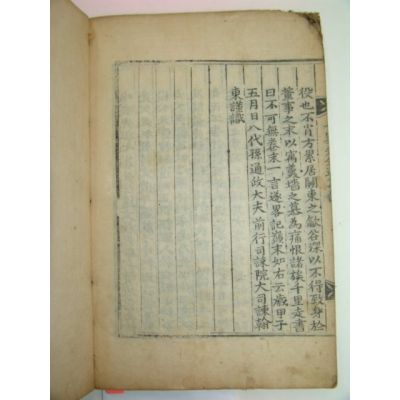 役也不肖方累居關東之歙谷深以不得致身於
董事之末以寓羹墻之慕為痛恨諸族千里走書
曰不可無卷末一言遂畧記顚末如右云歲甲子
五月日八代孫通政大夫前行司諫院大司諫翰
東謹識